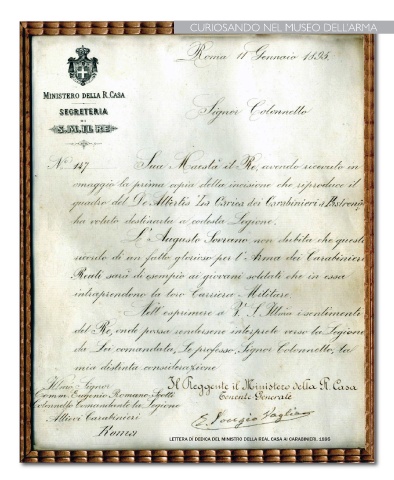 CURIOSANDO NEL MUSEO DELL'ARMA
Roma 11 Gennaio 1895.
MINISTERO DELLA R. CASA
SEGRETERIA
DI
S. M. IL RE
Signor Colonnello
N.° 147 Sua Maestà il Re, avendo ricevuto in
omaggio la prima copia della incisione che riproduce il
quadro del De Albertis La Carica dei Carabinieri a Pastrengo
ha voluto destinarla a codesta Legione.
L'Augusto Sovrano non dubita che questo
ricordo di un fatto glorioso per l'Arma dei Carabinieri
Reali sarà di esempio ai giovani soldati che in essa
intraprendono la loro Carriera Militare.
Nell'esprimere a V. S. Illma i sentimenti
del Re, onde possa rendersene interprete verso la Legione
da Lei comandata, Le professo, Signor Colonnello, la
mia distinta considerazione
Il Reggente il Ministero della R. Casa
Tenente Generale
Illmo Signor
Comm. Eugenio Romano Scotti
Colonnello Comandante la Legione
Allievi Carabinieri
Roma
LETTERA DI DEDICA DEL MINISTRO DELLA REAL CASA AI CARABINIERI. 1895